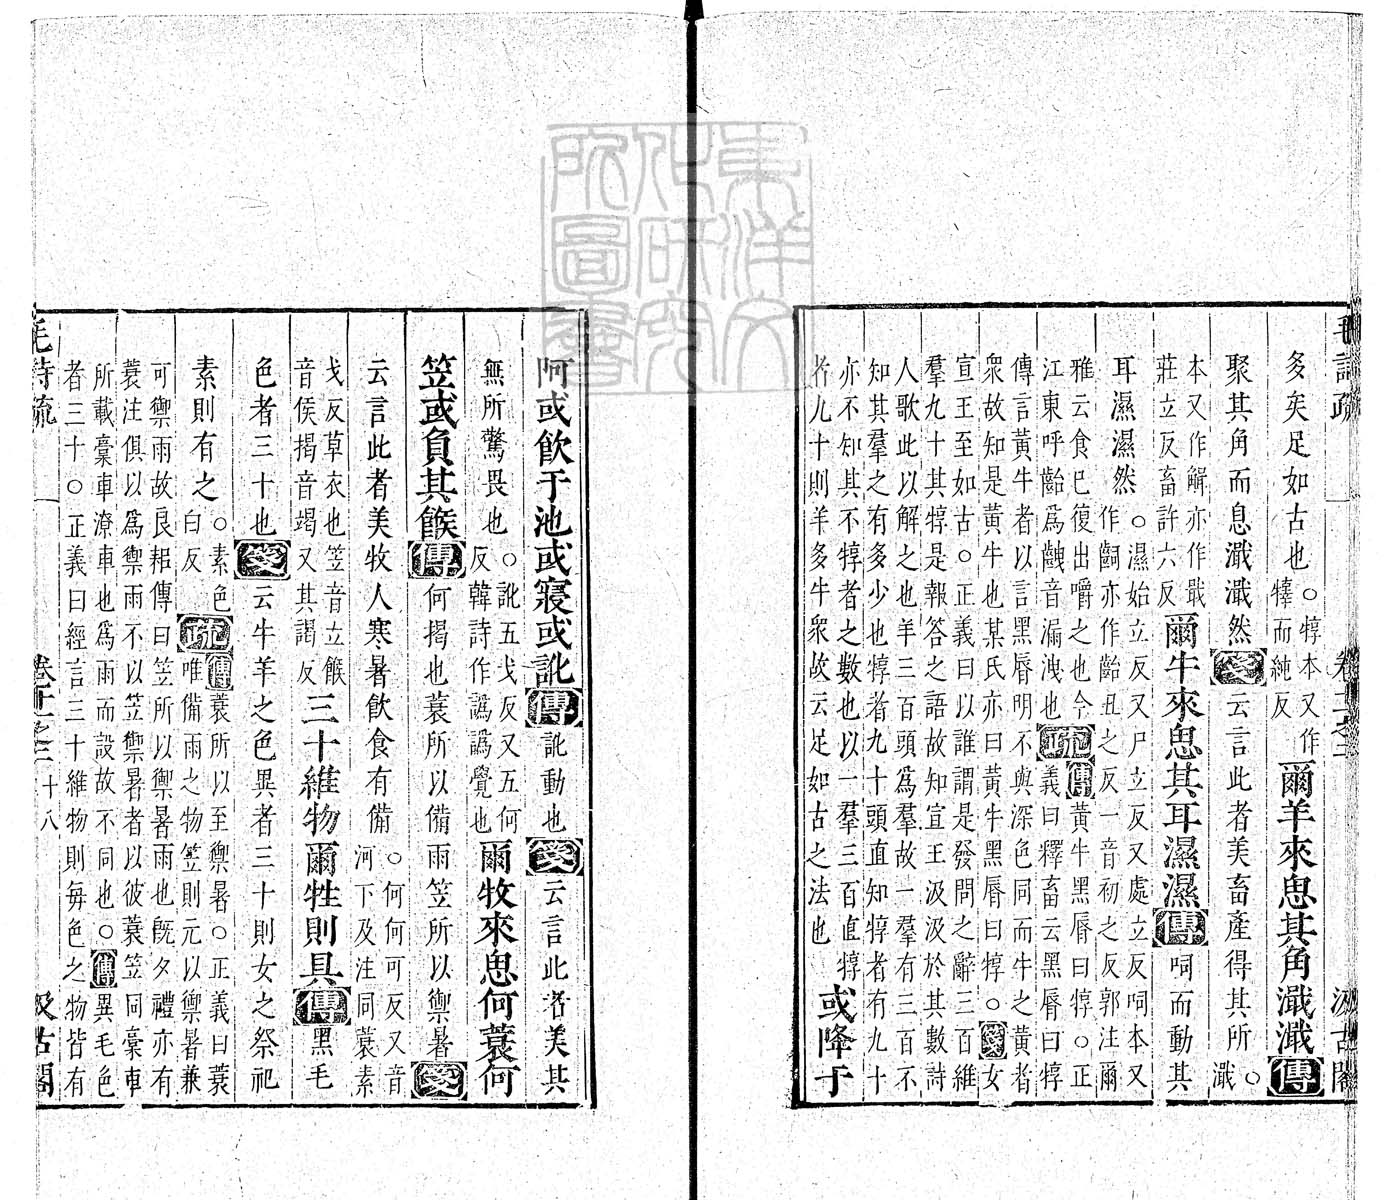 毛詩疏 卷十一之二 汲古閣
多矣足如古也○犉本又作犉而純反爾羊來思其角濈濈傳
聚其角而息濈濈然箋云言此者美畜産得其所○濈
本又作觧亦作戢莊立反畜許六反爾牛來思其耳濕濕傳呞而動其
耳濕濕然○濕始立反又尸立反又處立反呞本又作齝亦作齝丑之反一音初之反郭注爾
雅云食已復出嚼之也今江東呼齝爲齥音漏洩也疏傳黄牛黑脣曰犉○正義曰釋畜云黑脣曰犉
傳言黄牛者以言黑脣明不與深色同而牛之黄者衆故知是黄牛也某氏亦曰黄牛黑脣曰犉○箋女
宣王至如古○正義曰以誰謂是發問之辭三百維羣九十其犉是報答之語故知宣王汲汲於其數詩
人歌此以解之也羊三百頭爲羣故一羣有三百不知其羣之有多少也犉者九十頭直知犉者有九十
亦不知其不犉者之數也以一羣三百直犉者九十則羊多牛衆故云足如古之法也或降于
阿或飲于池或寢或訛傳訛動也箋云言此者美其
無所驚畏也○訛五戈反又五何反韓詩作譌譌覺也爾牧來思何蓑何
笠或負其餱傳何揭也蓑所以備雨笠所以禦暑箋
云言此者美牧人寒暑飲食有備○何何可反又音河下及注同蓑素
戈反草衣也笠音立餱音侯揭音竭又其謁反三十維物爾牲則具傳黑毛
色者三十也箋云牛羊之色異者三十則女之祭祀
素則有之○素色白反疏傳蓑所以至禦暑○正義曰蓑唯備雨之物笠則元以禦暑兼
可禦雨故良耜傳曰笠所以禦暑雨也旣夕禮亦有蓑注俱以爲禦雨不以笠禦暑者以彼蓑笠同稾車
所載稾車潦車也爲雨而設故不同也○傳異毛色者三十○正義曰經言三十維物則每色之物皆有
毛詩疏 卷十一之二 十八 汲古閣
東洋文化研究所圖書